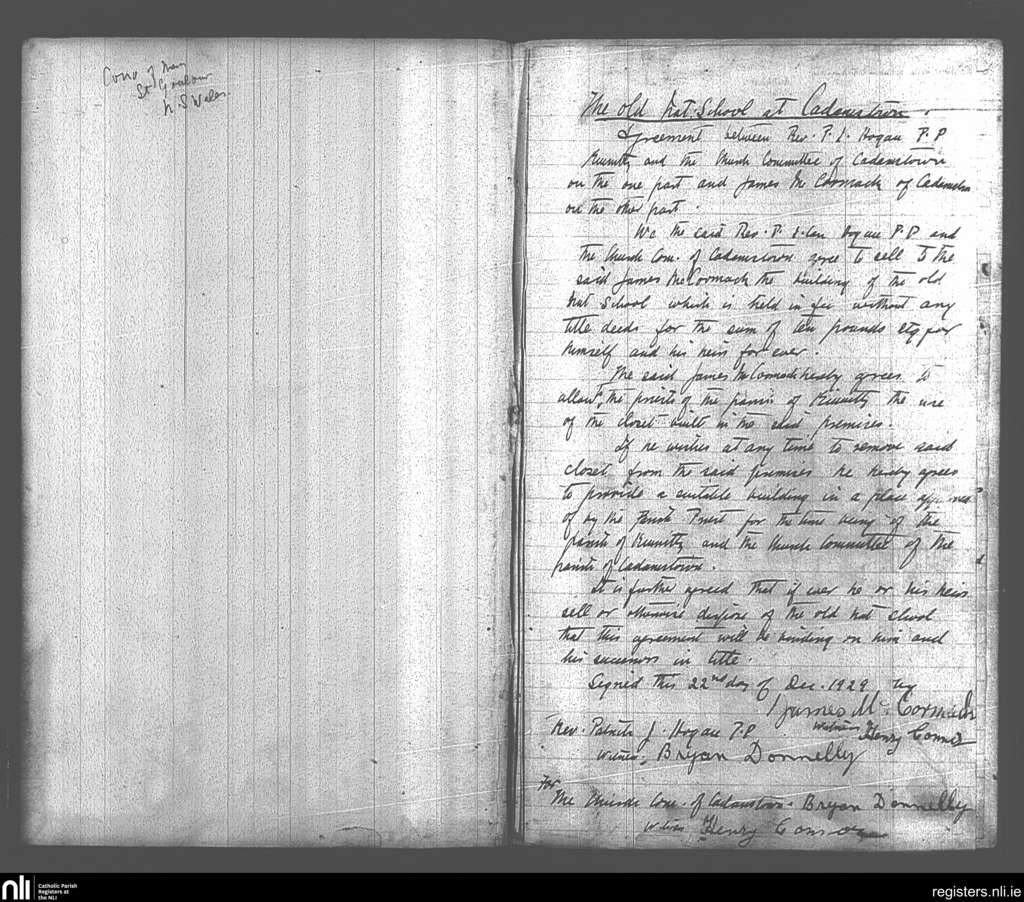 Conv of Mary
St
N. S Wales
The old Nat. School at Cadamstown.
Agreement between Rev. P. J. Hogan P.P
Kinnitty and the Church Committee of Cadamstown
on the one part and James McCormack of Cadamstown
on the other part.
We the said Rev. P. Hogan P.P and
the Church Com. of Cadamstown agree to sell to the
said James McCormack the building of the old
Nat School which is held in fee without any
title deeds for the sum of ten pounds stg for
himself and his heirs for ever.
The said James McCormack hereby agrees to
allow the priests of the parish of Kinnitty the use
of the closet built in the said premises.
If he wishes at any time to remove said
closet from the said premises he hereby agrees
to provide a suitable building in a place approved
of by the Parish Priest for the time being of the
parish of Kinnitty and the Church Committee of the
parish of Cadamstown.
It is further agreed that if ever he or his heirs
sell or otherwise dispose of the old Nat School
that this agreement will be binding on him and
his successors in title.
Signed this 22nd day of Dec. 1929 by
James McCormack
Rev. Patrick J. Hogan P.P. witness Henry
witness, Bryan Donnelly
For
The Church Com. of Cadamstown. Bryan Donnelly
witness Henry
nli
Catholic Parish
Registers at
the NLI
registers.nli.ie